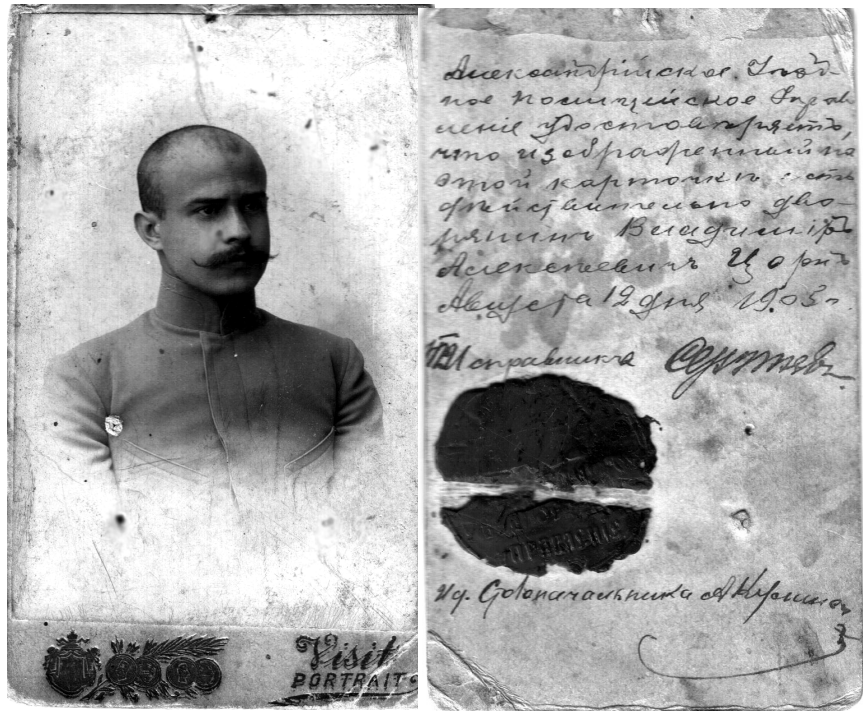 Visit
PORTRAIT
Александрійское Уѣзд-
ное Полицейское Управ
леніе удостовѣряетъ,
что изображенный на
этой карточкѣ есть
дѣйствительно дво-
рянинъ Владиміръ
Алексѣевичъ
Августа 12 дня 1905 г.
Исправника
УПРАВЛЕНІЕ
И.д. Столоначальника